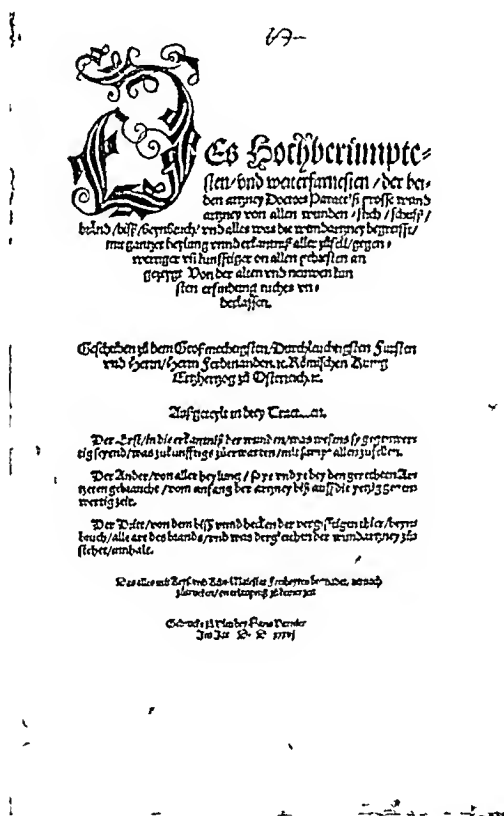 Des Hochberümpte-
sten/vnd weiterfarnesten/der bei-
den artzney Doctors Paracelsi grosse wund
artzney von allen wunden/stich/schüsß/
bränd/bisß/beynbrüch/vnd alles was die wundartzney begreifft/
mit gantzer heylung vnnd erkantnuß aller zůfell/gegen-
wertiger vñ kunfftiger on allen gebresten an
gezeygt Von der alten vnd nauwen kun
sten erfindung nichts vn-
derlassen.
Geschriben zů dem Großmechtigsten/Durchleuchtigsten Fursten
vnd Herrn/Herrn Ferdinanden. ꝛc. Römischen Kunig
Ertzhertzog zů Osterreich ꝛc.
Aufgeteylt in drey
Der Erst/in die erkantnisß der wunden/was wesens sy gegenwer
tig seyend/was zukunfftigs zůerwarten/mit sampt allen zufellen.
Der Ander/von aller heylung/so ye vnd ye bey den gerechten Art
tzeten gebraucht/vom anfang der artzney biß auff die yetzig gegen
wertig zeit.
Der Dritt/von dem biß vnnd hecken der vergifftigen thier/beyn
bruch/alle art des brands/vnd was dergleichen der wundartzney zů
stehet/innhalt.
Getruckt zů Vlm bey Hans Varnier
Im Jar